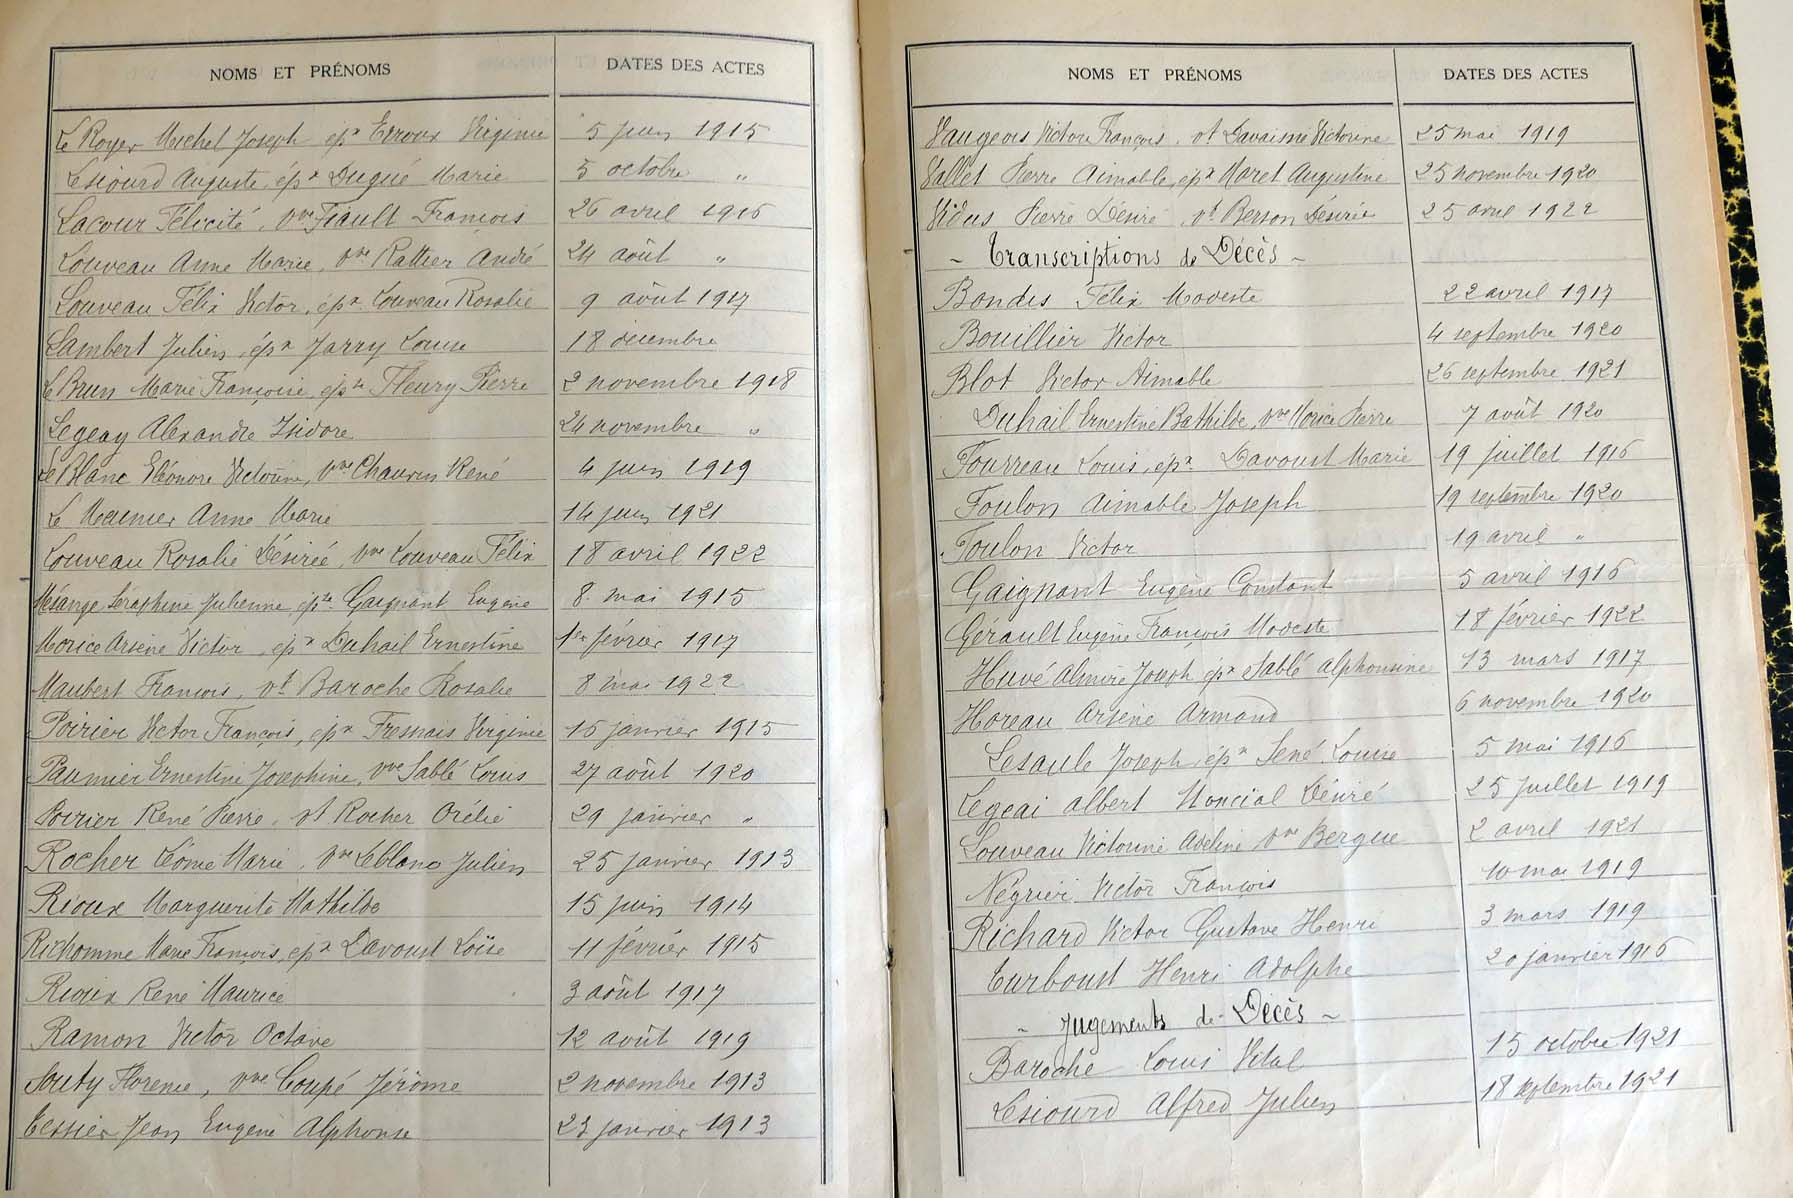 NOMS ET PRÉNOMS DATES DES ACTES
Le Royer Michel Joseph épx Erroux Virginie 5 juin 1915
Lesiourd Auguste, épx Dugué Marie 5 octobre "
Lacour Félicité, vve Fiault François 26 avril 1916
Louveau Anne Marie, vve Rattier André 24 août "
Louveau Félix Victor, épx Louveau Rosalie 9 août 1917
Lambert Julien, épx Jarry Louise 18 décembre
Le Brun Marie Françoise, épse Fleury Pierre 2 novembre 1918
Legeay Alexandre Isidore 24 novembre "
Le Blanc Eléonore Victorine, vve Chauvin René 4 juin 1919
Le Meunier Anne Marie 14 juin 1921
Louveau Rosalie Désirée, vve Louveau Félix 18 avril 1922
Mésange Séraphine Julienne, épse Gaignant Eugène 8 mai 1915
Morice Arsène Victor, épx Duhail Ernestine 1er février 1917
Maubert François, vf Baroche Rosalie 8 mai 1922
Poirier Victor François, épx Fresnais Virginie 15 janvier 1915
Paumier Ernestine Joséphine, vve Sablé Louis 27 août 1920
Poirier René Pierre, vf Rocher Orélie 29 janvier "
Rocher Léonie Marie, vve Leblanc Julien 25 janvier 1913
Rioux Marguerite Mathilde 15 juin 1914
Richomme Marie François, épx Davoust Loïse 11 février 1915
Rioux René Maurice 3 août 1917
Ramon Victor Octave 12 août 1919
Souty Florence, vve Coupé Jérôme 2 novembre 1913
Tessier Jean Eugène Alphonse 23 janvier 1913
NOMS ET PRÉNOMS DATES DES ACTES
Vaugeois Victor François, vf Davaisne Victorine 25 mai 1919
Vallet Pierre Aimable, épx Maret Augustine 25 novembre 1920
Vidus Pierre Désiré, vf Berson Désirée 25 avril 1922
- Transcriptions de Décès -
Bondis Félix Modeste 22 avril 1917
Bouillier Victor 4 septembre 1920
Blot Victor Aimable 26 septembre 1921
Duhail Ernestine Bathilde, vve Morice Pierre 7 août 1920
Fourreau Louis, épx Davoust Marie 19 juillet 1916
Foulon Aimable Joseph 19 septembre 1920
Foulon Victor 19 avril "
Gaignant Eugène Constant 5 avril 1916
Gérault Eugène François Modeste 18 février 1922
Huvé Almire Joseph épx Sablé Alphonsine 13 mars 1917
Horeau Arsène Armand 6 novembre 1920
Lesaule Joseph, épx Sené Louise 5 mai 1916
Legeai Albert Désiré 25 juillet 1919
Louveau Victorine Adeline vve Bergue 2 avril 1921
Négrier Victor François 10 mai 1919
Richard Victor Gustave Henri 3 mars 1919
Turboust Henri Adolphe 20 janvier 1916
- Jugements de Décès -
Baroche Louis Vital 15 octobre 1921
Lesiourd Alfred Julien 18 septembre 1921